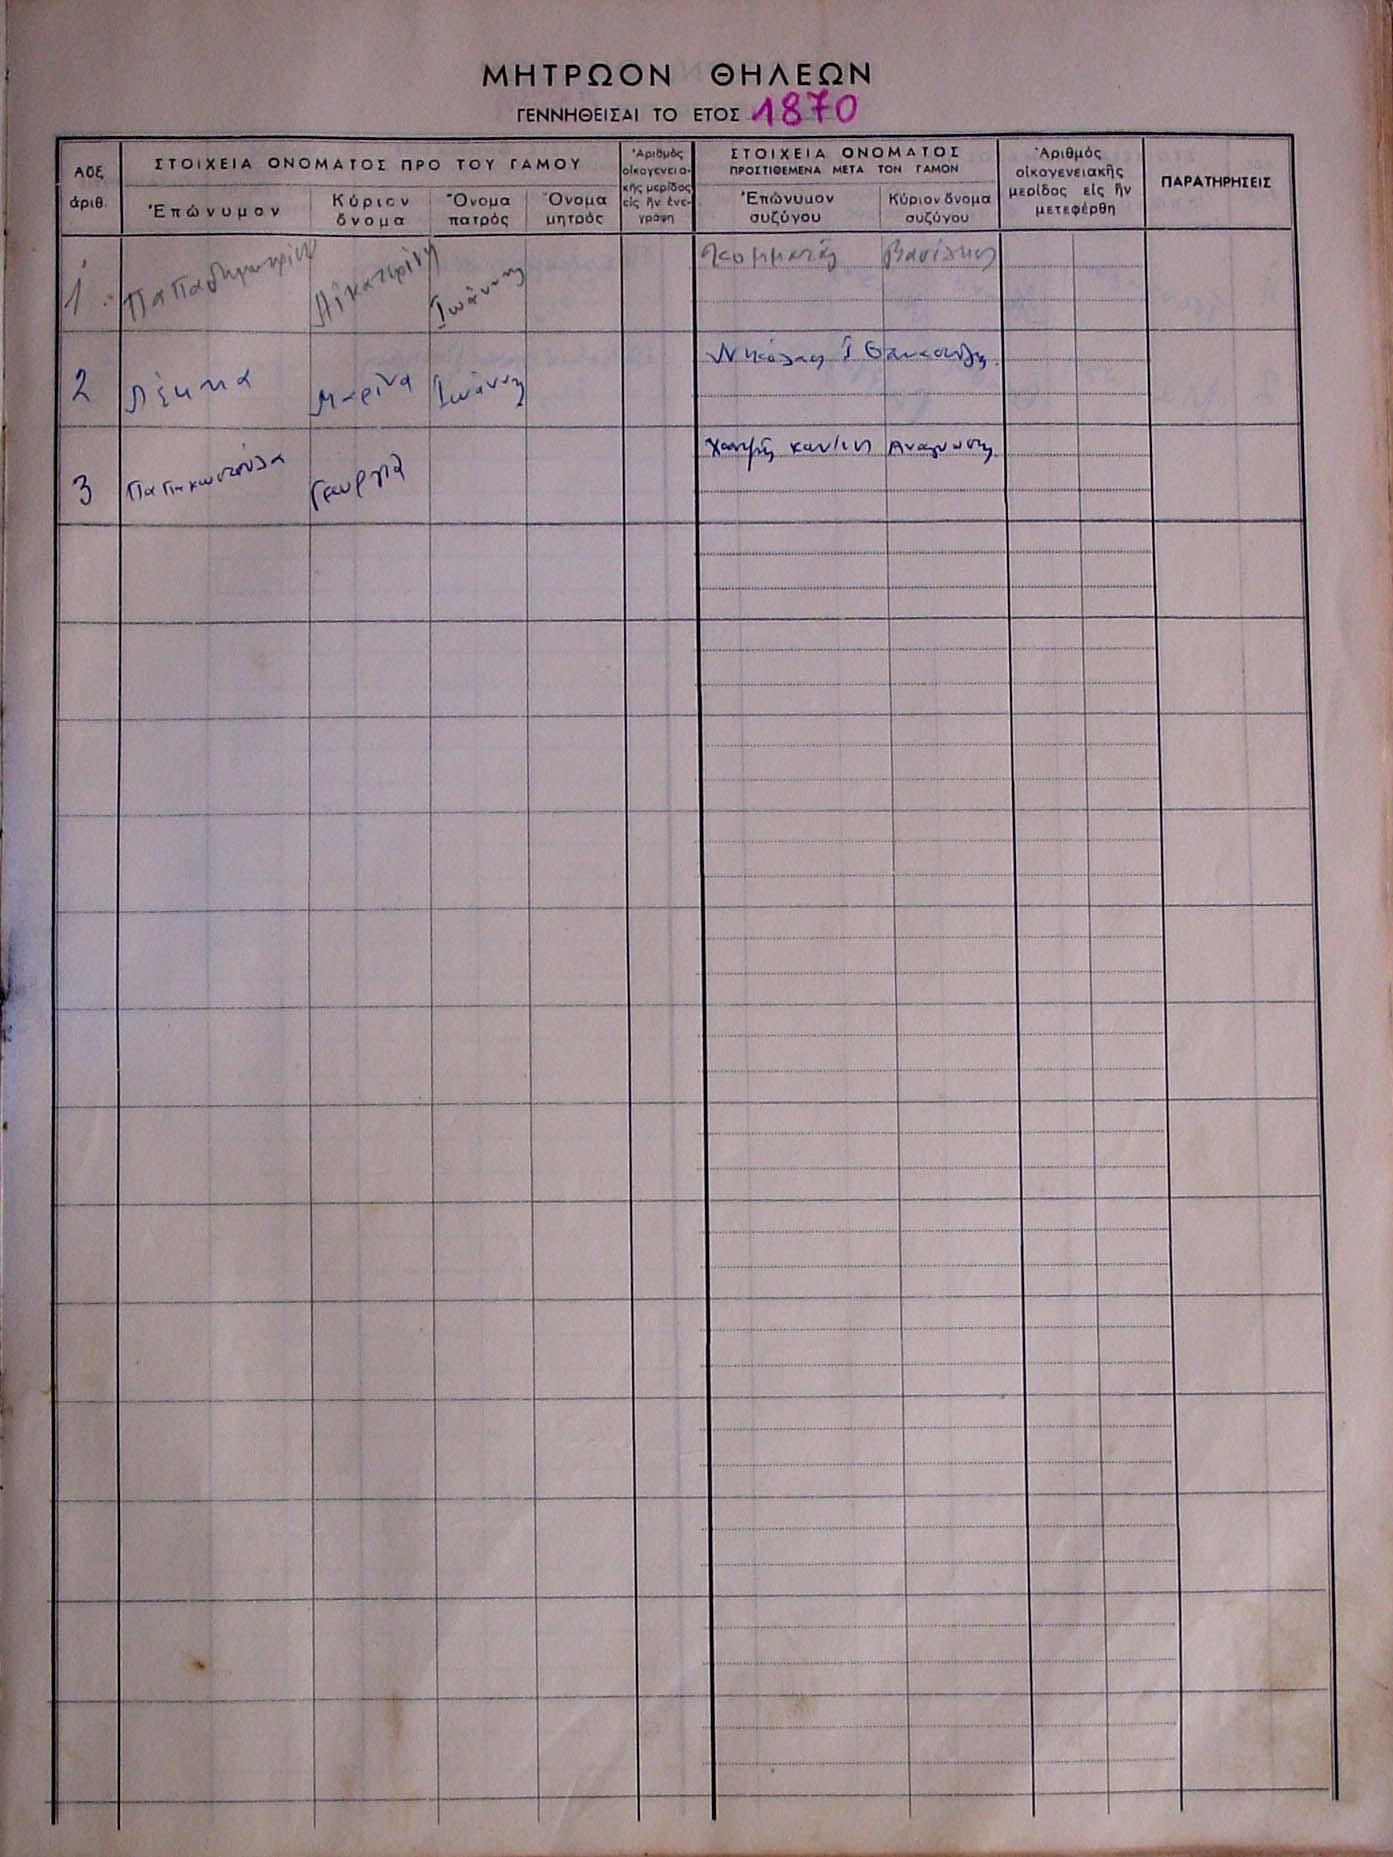 ΜΗΤΡΩΟΝ ΘΗΛΕΩΝ
ΓΕΝΝΗΘΕΙΣΑΙ ΤΟ ΕΤΟΣ 1870
Αὔξ. ἀριθ.
ΣΤΟΙΧΕΙΑ ΟΝΟΜΑΤΟΣ ΠΡΟ ΤΟΥ ΓΑΜΟΥ
Ἐπώνυμον
Κύριον ὄνομα
Ὄνομα πατρός
Ὄνομα μητρός
Ἀριθμὸς οἰκογενειακῆς μερίδος εἰς ἣν ἐνεγράφη
ΣΤΟΙΧΕΙΑ ΟΝΟΜΑΤΟΣ
ΠΡΟΣΤΙΘΕΜΕΝΑ ΜΕΤΑ ΤΟΝ ΓΑΜΟΝ
Ἐπώνυμον συζύγου
Κύριον ὄνομα συζύγου
Ἀριθμὸς οἰκογενειακῆς μερίδος εἰς ἣν μετεφέρθη
ΠΑΡΑΤΗΡΗΣΕΙΣ
1 Παπαδημητρίου Αἰκατερίνη Ἰωάννης Κομματᾶς Βασίλειος
2 Λέκκα Μαρίνα Ἰωάννης Νικόλαος Ἰ
3 Παπακωστούλα Γεωργία